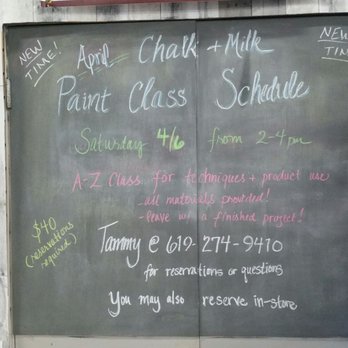 NEW TIME!
NEW TIME!
April Chalk + Milk
Paint Class Schedule
Saturday 4/6 from 2-4pm
A-Z Class for techniques + product use
- all materials provided!
- leave w/ a finished project!
$40
(reservations required)
Tammy @ 619-274-9410
for reservations or questions
You may also reserve in-store